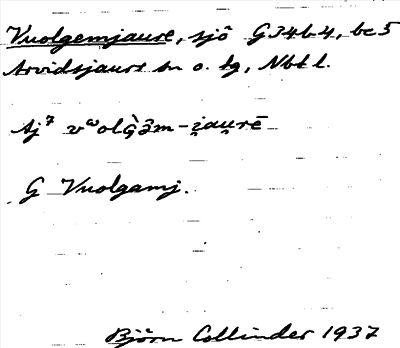 Vuolgemjaure, sjö G34b4, bc5
Arvidsjaurs sn o. tg, Nbt l.
Aj⁷ vʷolG̀ə̑m-i̯au̯rē
G Vuolgamj.
Björn Collinder 1937